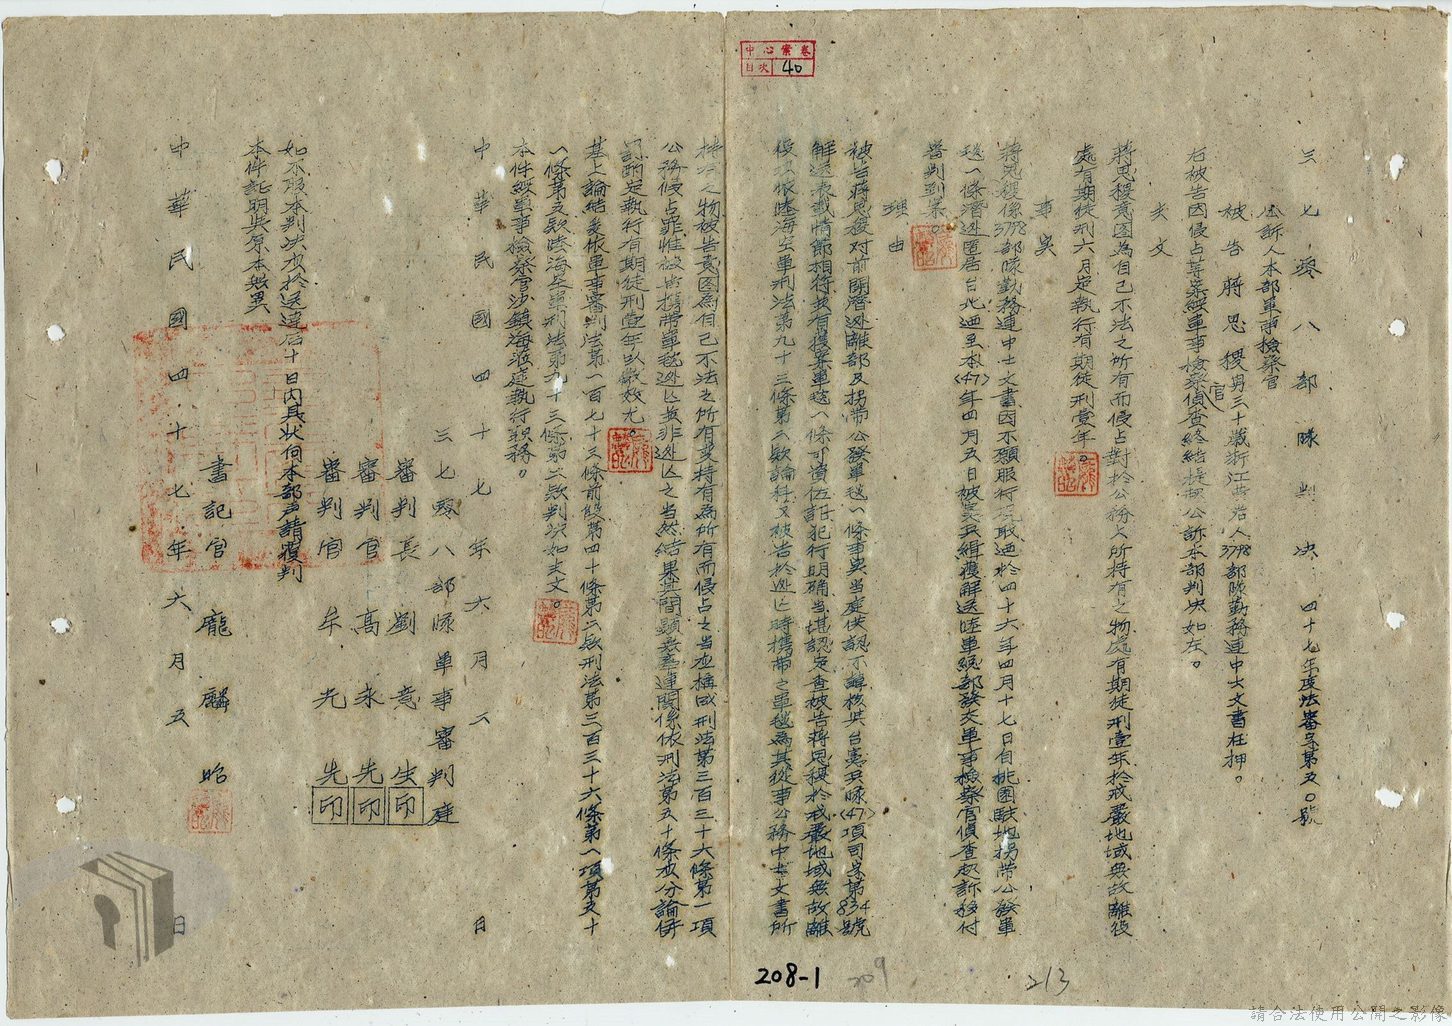 中心案卷
目次 40
三七零八部隊判決 四十七年度法審字第五〇號
公訴人本部軍事檢察官
被告蔣思稷男三十歲浙江黃岩人3798部隊勤務連中士文書在押。
右被告因侵占等案經軍事檢察官偵查終結提起公訴本部判決如左。
主文
蔣思稷意圖為自己不法之所有而侵占對於公務上所持有之物處有期徒刑壹年於戒嚴地域無故離役
處有期徒刑六月定執行有期徒刑壹年。
事實
蔣思稷係3798部隊勤務連中士文書因不願服行現職迺於四十六年四月十七日自桃園駐地拐帶公發軍
毯一條潛逃匿居台北迺至本(47)年四月五日被憲兵緝獲解送陸軍總部發交軍事檢察官偵查起訴移付
審判到案。
理由
被告蔣思稷對前開潛逃離部及拐帶公發軍毯一條事實當庭供認不諱核與台憲兵隊(47)項司字第834號
解送表載情節相符並有獲案軍毯一條可資佐証犯行明確當堪認定查被告蔣思稷於戒嚴地域無故離
役項依陸海空軍刑法第九十三條第二款論科又被告於逃亡時攜帶之軍毯為其從事公務中士文書所
持有之物被告意圖為自己不法之所有變持有為所有而侵占之當應構成刑法第三百三十六條第一項
公務侵占罪惟被告攜帶軍毯逃亡並非逃亡之當然結果其間顯無牽連關係依刑法第五十條應分論併
罰酌定執行有期徒刑壹年以儆效尤。
基上論結爰依軍事審判法第一百七十三條前段第四十條第二款刑法第三百三十六條第一項第五十
一條第五款陸海空軍刑法第九十三條第二款判決如主文。
本件經軍事檢察官沙鎮海蒞庭執行職務。
中華民國四十七年六月二日
三七零八部隊軍事審判庭
審判長劉意生 印
審判官高永先 印
審判官牟光先 印
如不服本判決應於送達后十日內具狀向本部声請覆判
本件証明與原本無異
書記官龐麟昭
中華民國四十七年六月五日
208-1
209
213
請合法使用公開之影像